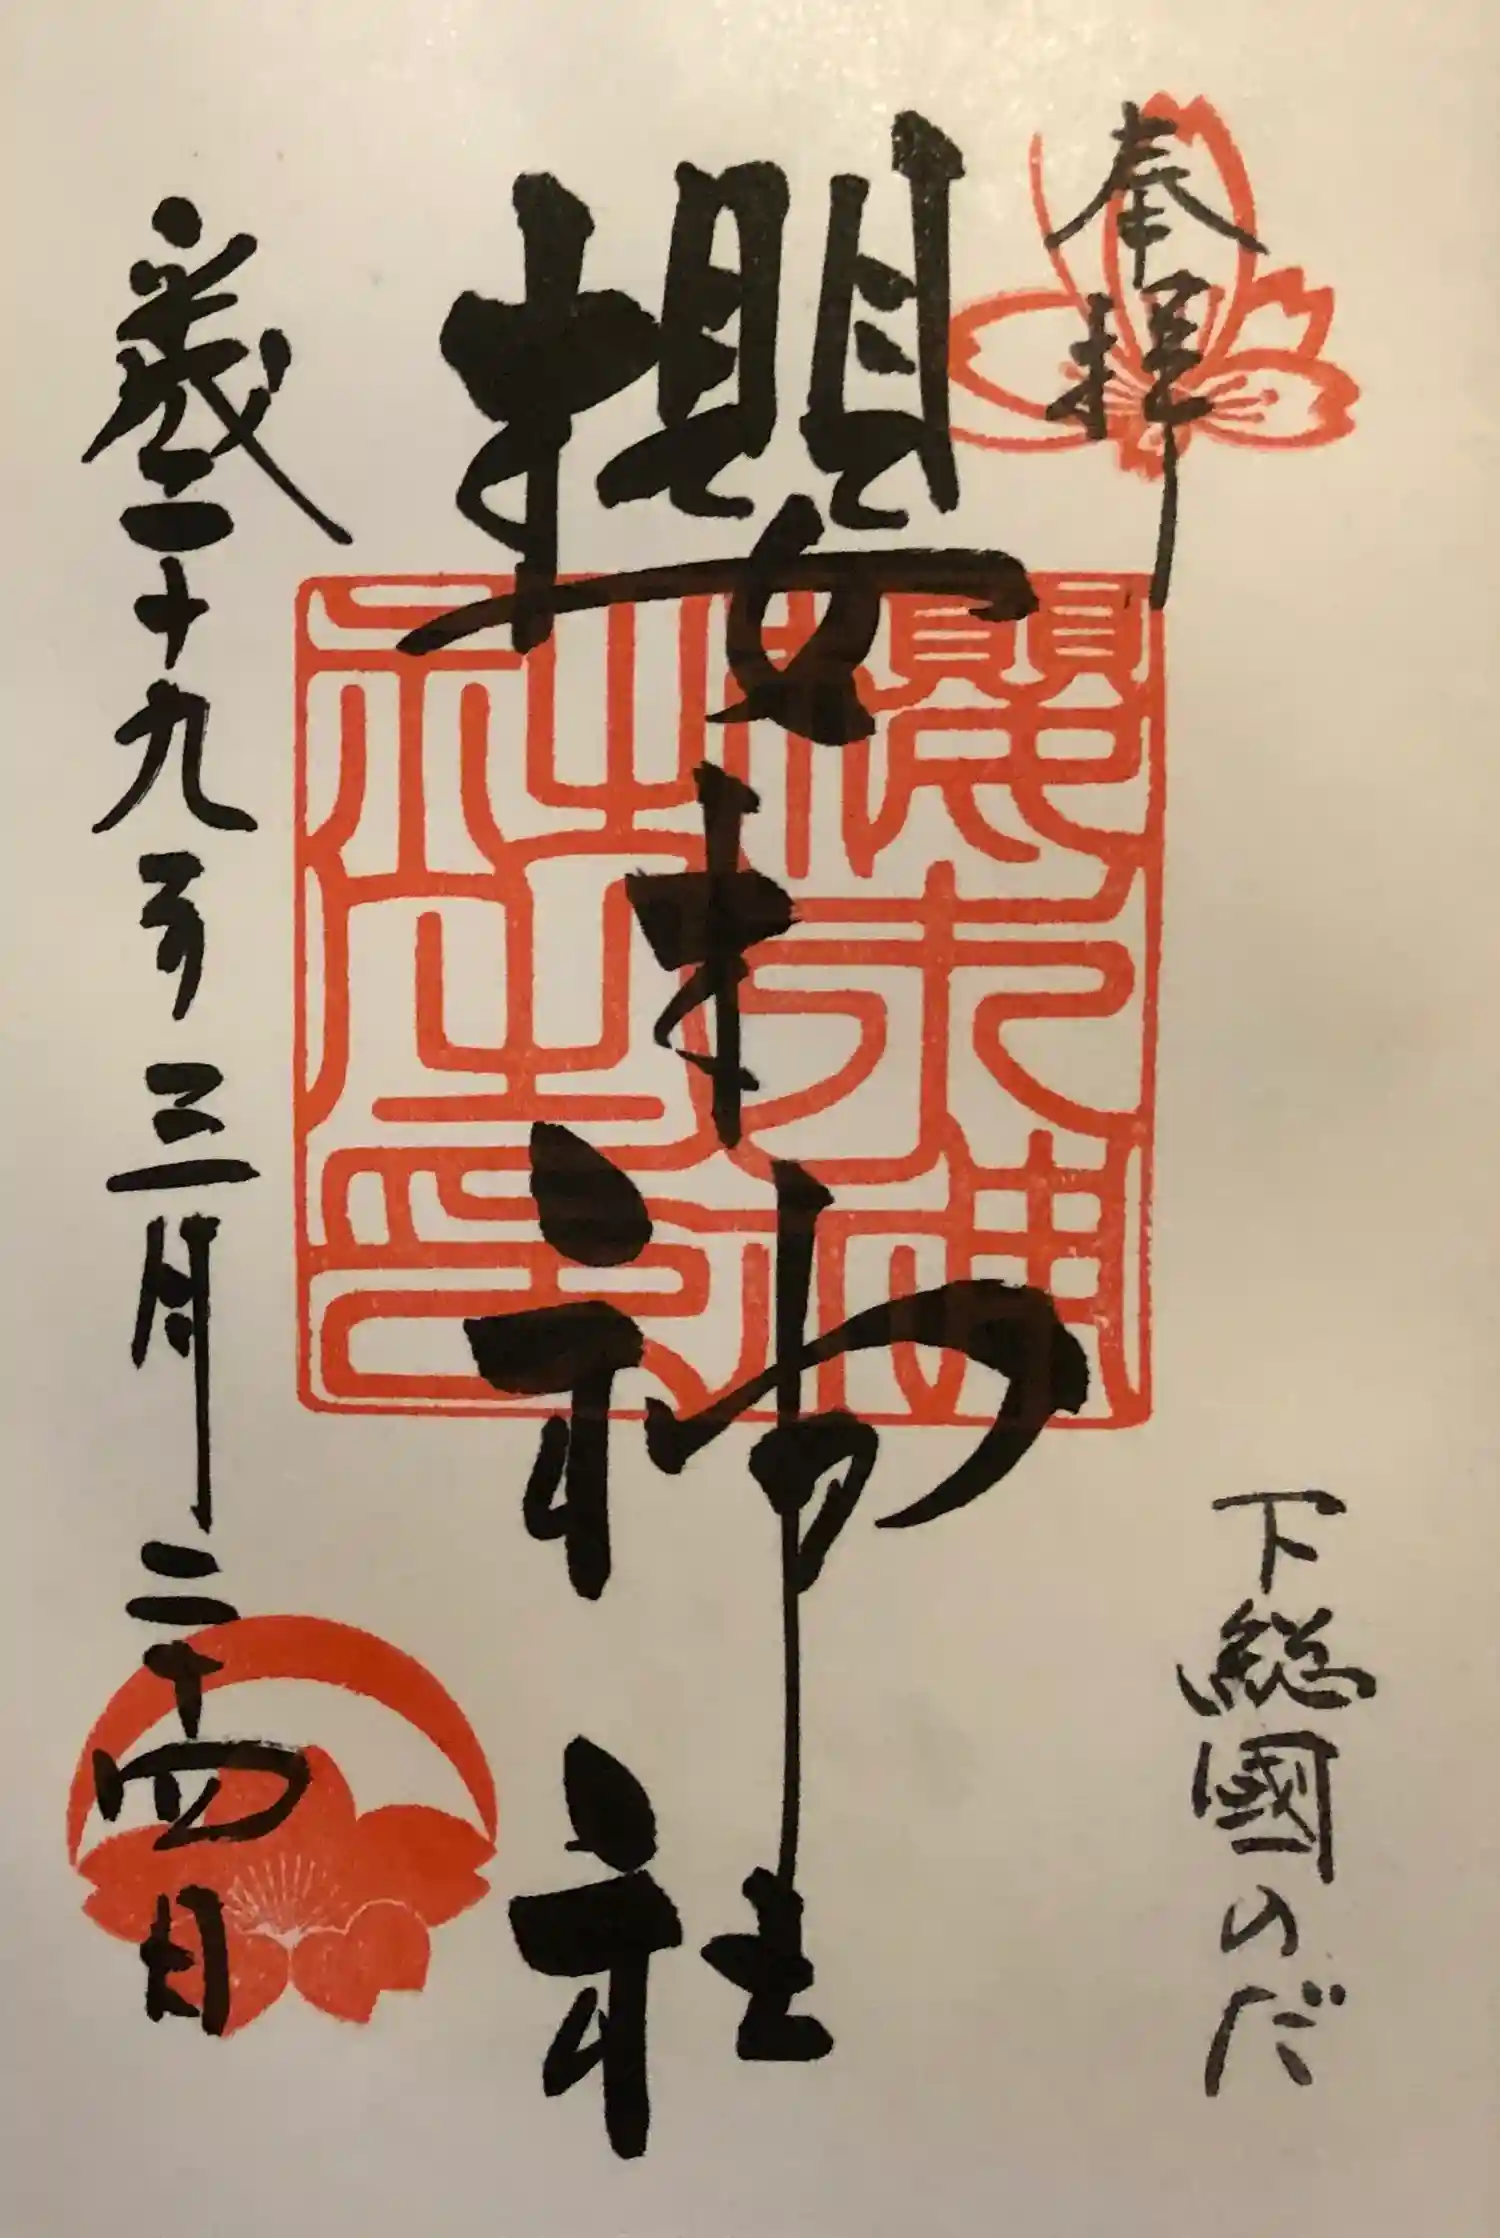 奉拝
下総國のだ
櫻木神社
櫻木神社之印
歳二十九年三月二十四日